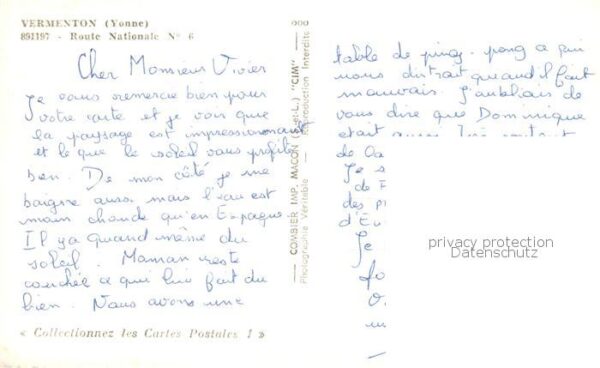 VERMENTON (Yonne)
891197 - Route Nationale N° 6
Cher Monsieur Vivier
Je vous remercie bien pour
votre carte et je vois que
la paysage est impressionnant
et le que le soleil vous profite
bien. De mon côté je me
baigne aussi mais l'eau est
moin chaude qu'en Espagne.
Il y a quand même du
soleil. Maman reste
couchée ce qui lui fait du
bien. Nous avons une
« Collectionnez les Cartes Postales ! »
COMBIER IMP. MACON (S.-et-L.) "CIM"
Photographie Véritable - Reproduction Interdite
table de ping-pong ce qui
nous distrait quand il fait
mauvais. J'oubliais de
vous dire que Dominique
etait aussi
de
Je
de
des
d'
Je
privacy protection
Datenschutz